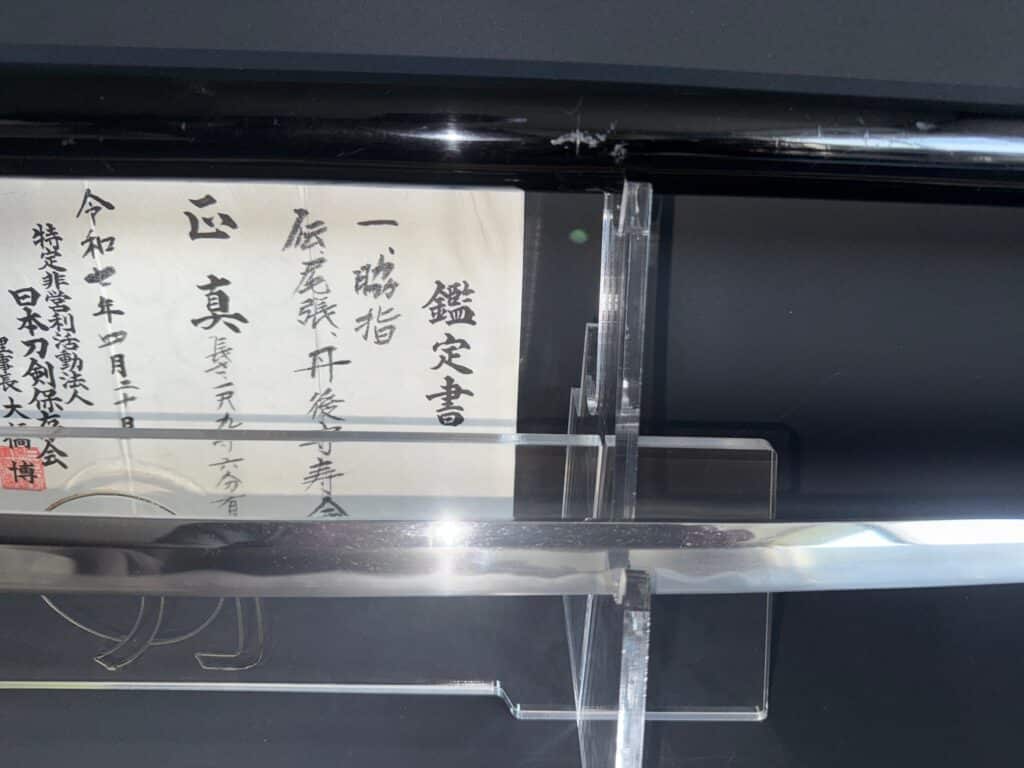 鑑定書
一、脇指
伝尾張、丹後守寿命
正真 長さ一尺九寸六分有
令和七年四月二十日
特定非営利活動法人
日本刀剣保存会
理事長 大
博